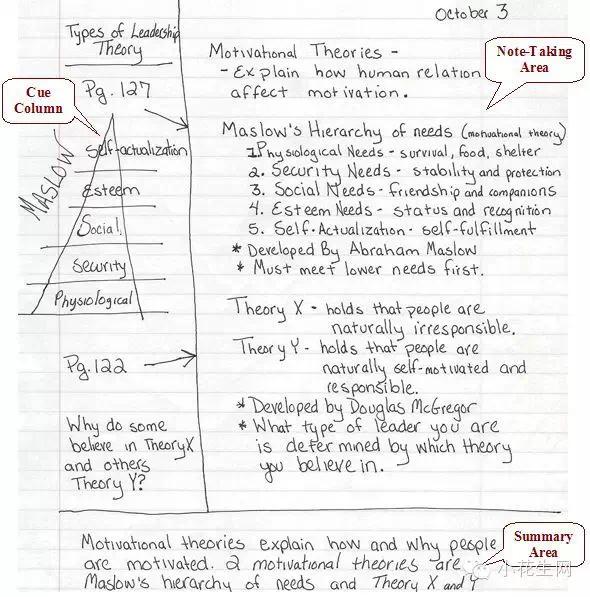 October 3
Types of Leadership
Theory
Pg. 127
Cue
Column
MASLOW
Self-actualization
Esteem
Social
Security
Physiological
Pg. 122
Why do some
believe in Theory X
and others
Theory Y?
Note-Taking
Area
Motivational Theories -
- Explain how human relation
affect motivation.
Maslow's Hierarchy of needs (motivational theory)
1. Physiological Needs - survival, food, shelter
2. Security Needs - stability and protection
3. Social Needs - friendship and companions
4. Esteem Needs - status and recognition
5. Self-Actualization - self-fulfillment
* Developed By Abraham Maslow
* Must meet lower needs first.
Theory X - holds that people are
naturally irresponsible.
Theory Y - holds that people are
naturally self-motivated and
responsible.
* Developed by Douglas McGregor
* What type of leader you are
is determined by which theory
you believe in.
Summary
Area
Motivational theories explain how and why people
are motivated. 2 motivational theories are
Maslow's hierarchy of needs and Theory X and Y
小花生网